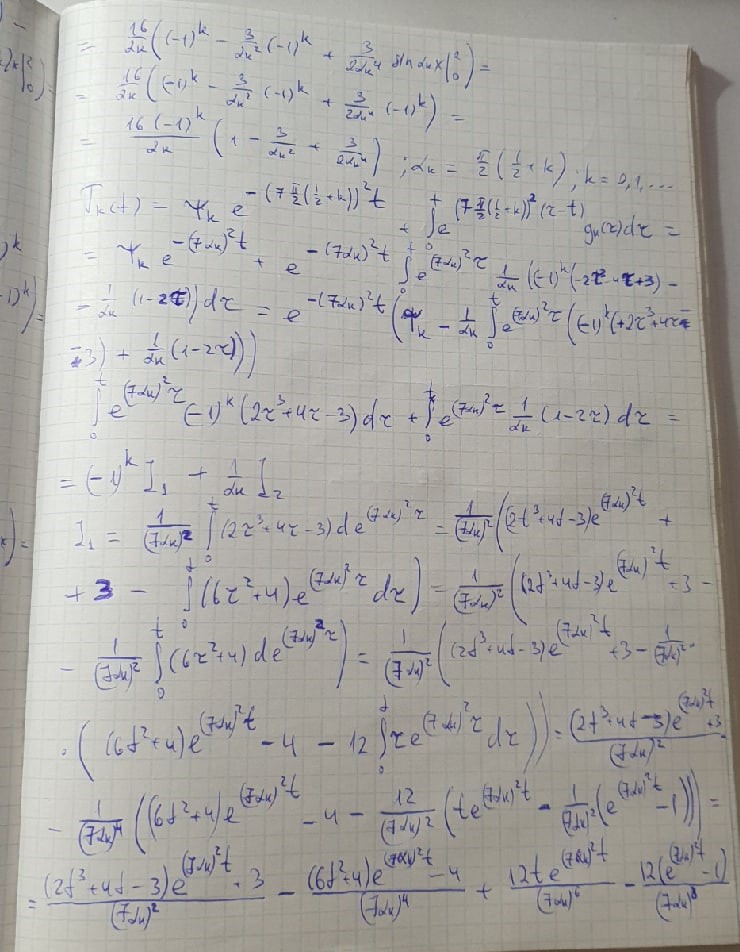 = 16/αk ((-1)^k - 3/αk² (-1)^k + 3/2αk⁴ sin αk x |₀²) =
= 16/αk ((-1)^k - 3/αk² (-1)^k + 3/2αk⁴ (-1)^k) =
= 16(-1)^k/αk (1 - 3/αk² + 3/2αk⁴) ; αk = π/2 (1/2 + k) ; k = 0,1,...
Tk(t) = Ψk e^(-(7 π/2 (1/2+k))² t) + ∫₀^t e^((7 π/2 (1/2+k))² (τ-t)) gk(τ)dτ =
= Ψk e^(-(7αk)² t) + e^(-(7αk)² t) ∫₀^t e^((7αk)² τ) 1/αk ((-1)^k (-2τ³-4τ+3) -
- 1/αk (1-2τ)) dτ = e^(-(7αk)² t) (Ψk - 1/αk ∫₀^t e^((7αk)² τ) ((-1)^k (+2τ³+4τ-
-3) + 1/αk (1-2τ)))
∫₀^t e^((7αk)² τ) (-1)^k (2τ³+4τ-3) dτ + ∫₀^t e^((7αk)² τ) 1/αk (1-2τ) dτ =
= (-1)^k I₁ + 1/αk I₂
I₁ = 1/(7αk)² ∫₀^t (2τ³+4τ-3) de^((7αk)² τ) = 1/(7αk)² ((2t³+4t-3)e^((7αk)² t) +
+ 3 - ∫₀^t (6τ²+4) e^((7αk)² τ) dτ) = 1/(7αk)² ((2t³+4t-3)e^((7αk)² t) +3 -
- 1/(7αk)² ∫₀^t (6τ²+4) de^((7αk)² τ)) = 1/(7αk)² ((2t³+4t-3)e^((7αk)² t) +3 - 1/(7αk)² ·
· ((6t²+4)e^((7αk)² t) - 4 - 12 ∫₀^t τe^((7αk)² τ) dτ)) = ((2t³+4t-3)e^((7αk)² t) +3)/(7αk)² -
- 1/(7αk)⁴ ((6t²+4)e^((7αk)² t) - 4 - 12/(7αk)² (te^((7αk)² t) - 1/(7αk)² (e^((7αk)² t) - 1))) =
= ((2t³+4t-3)e^((7αk)² t) + 3)/(7αk)² - ((6t²+4)e^((7αk)² t) - 4)/(7αk)⁴ + 12te^((7αk)² t)/(7αk)⁶ - 12(e^((7αk)² t) - 1)/(7αk)⁸